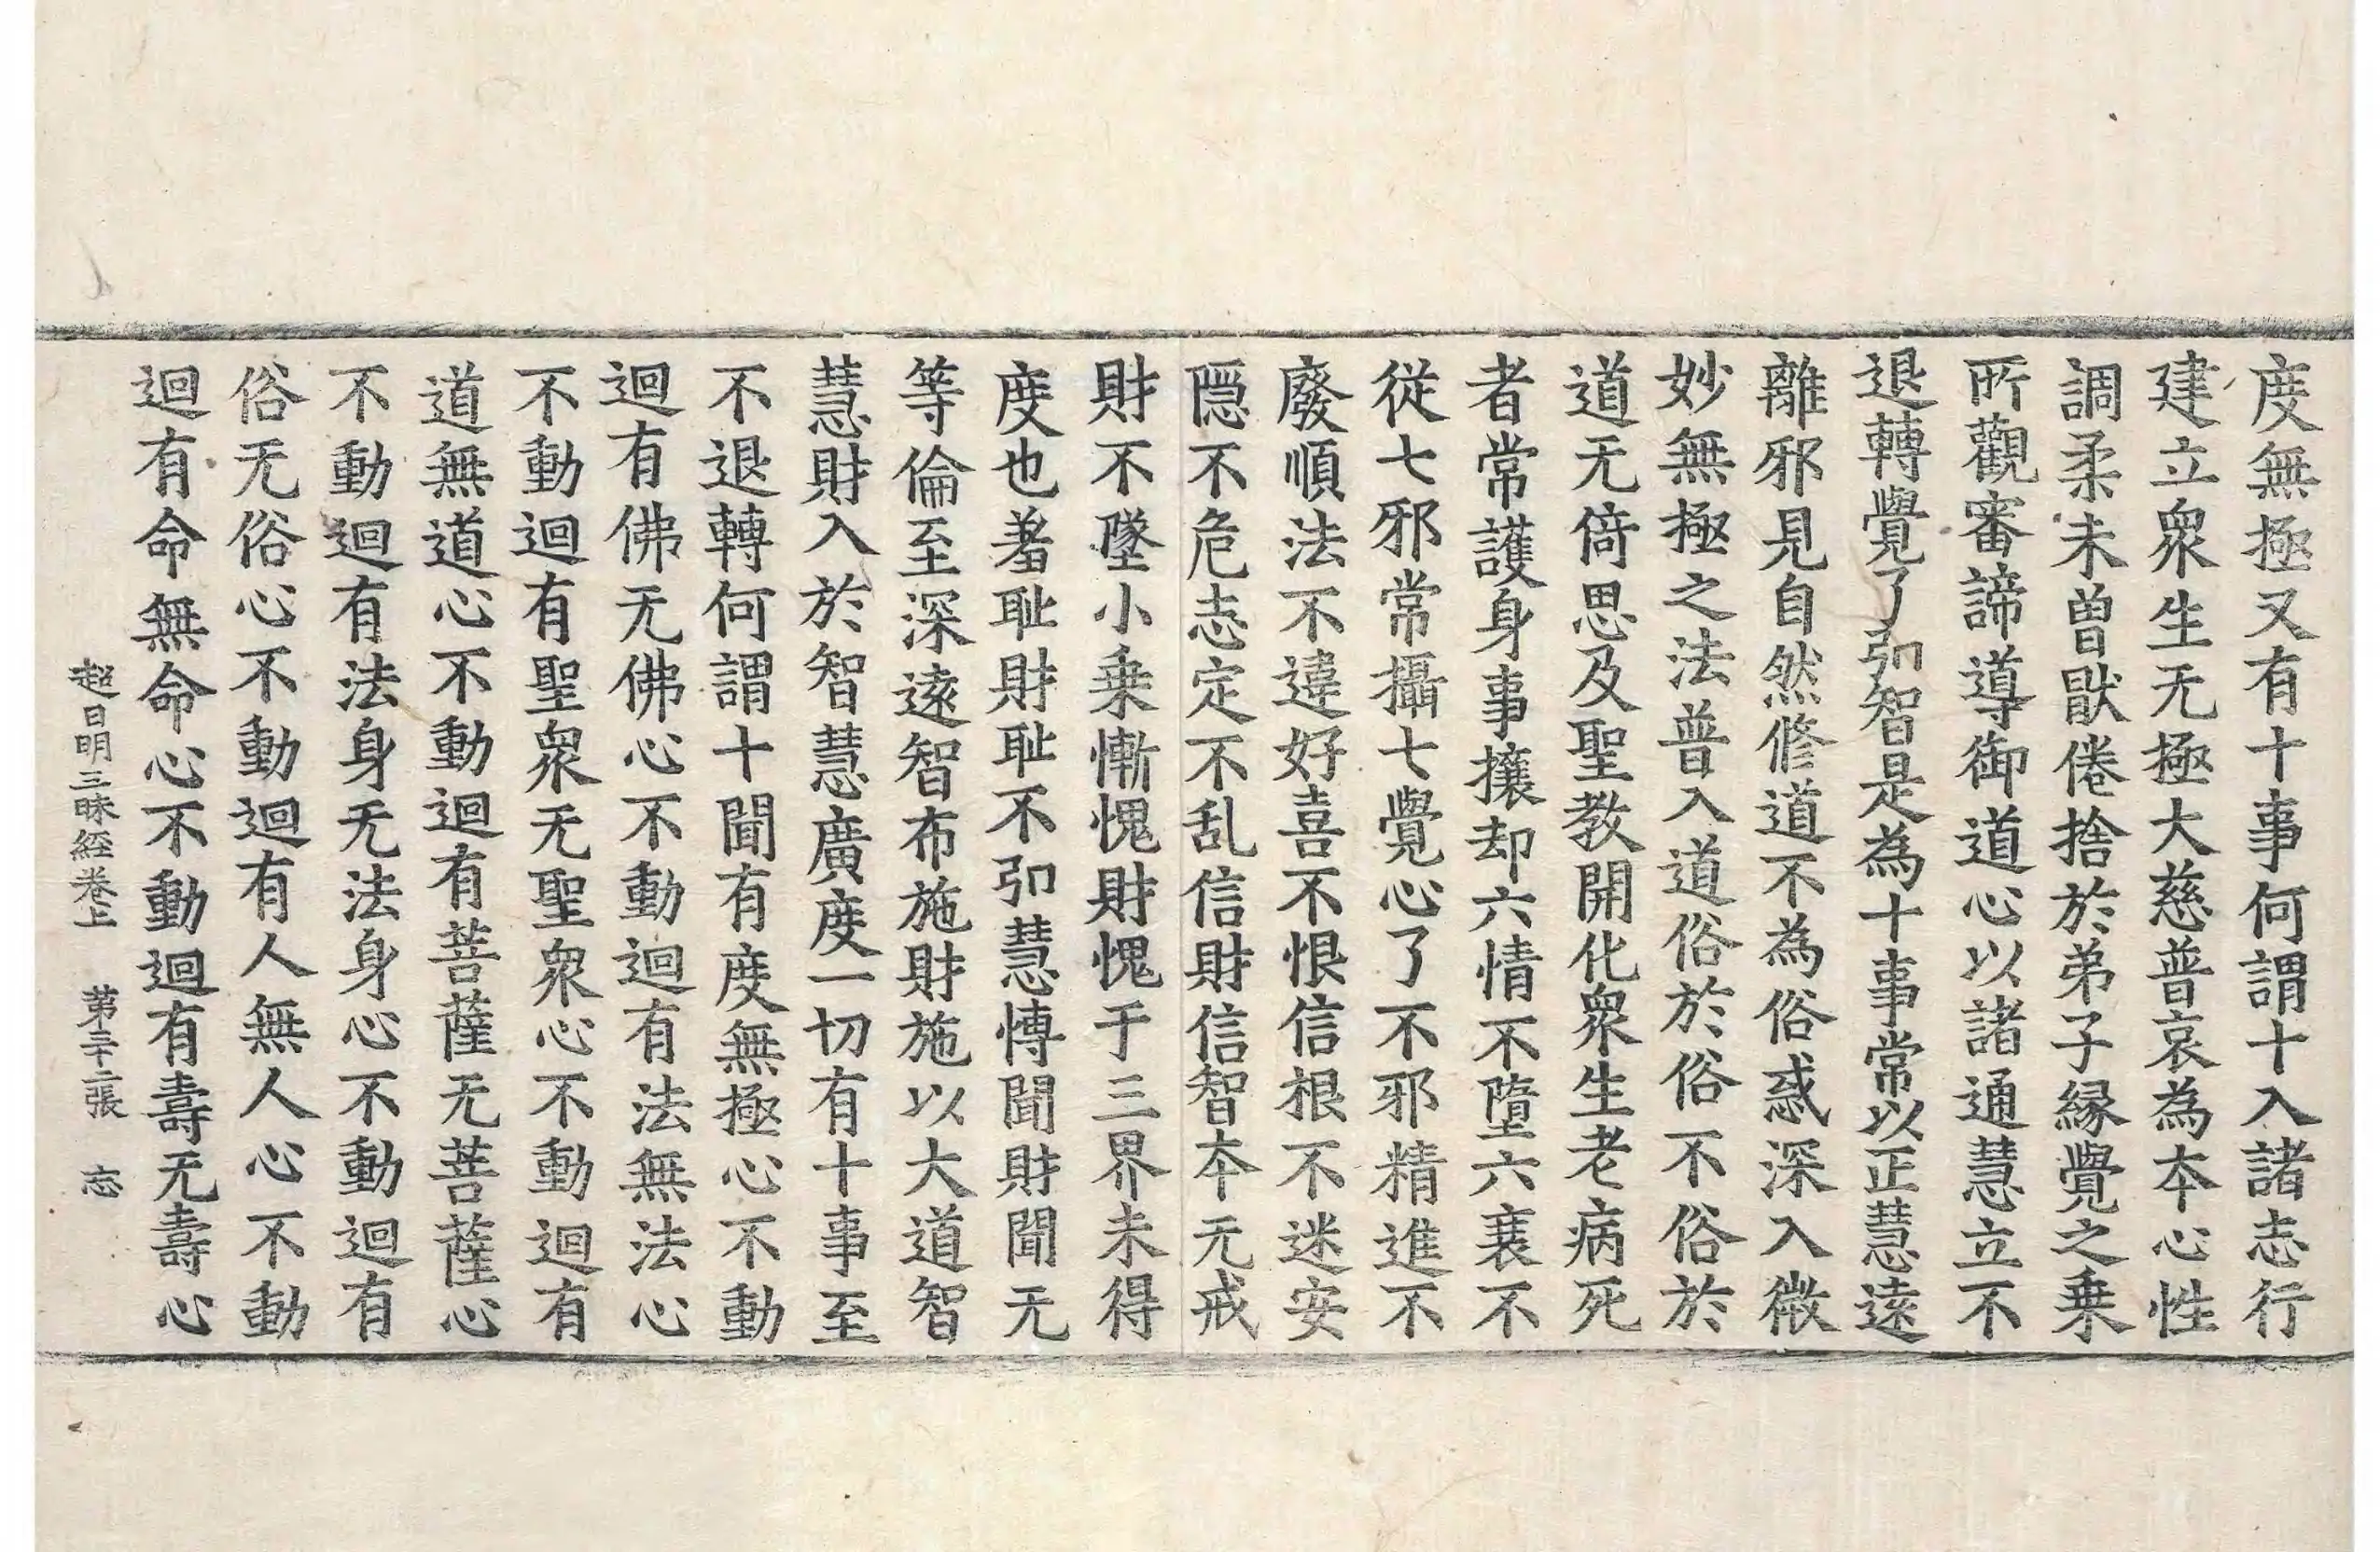 度無極又有十事何謂十入諸志行
建立衆生无極大慈普哀為夲心性
調柔未曽猒倦捨於弟子縁覺之乗
所觀審諦導御道心以諸通慧立不
退轉覺了弘智是為十事常以正慧遠
離邪見自然修道不為俗惑深入微
妙無極之法普入道俗於俗不俗於
道无倚思及聖教開化衆生老病死
者常護身事攘却六情不墮六衰不
從七邪常攝七覺心了不邪精進不
廢順法不違好喜不恨信根不迷安
隠不危志定不乱信財信智夲无戒
財不墜小乗慚愧財愧于三界未得
度也羞耻財耻不弘慧慱聞財聞无
等倫至深遠智布施財施以大道智
慧財入於智慧廣度一切有十事至
不退轉何謂十聞有度無極心不動
迴有佛无佛心不動迴有法無法心
不動迴有聖衆无聖衆心不動迴有
道無道心不動迴有菩薩无菩薩心
不動迴有法身无法身心不動迴有
俗无俗心不動迴有人無人心不動
迴有命無命心不動迴有壽无壽心
超日明三昧經卷上 第三十二張 志